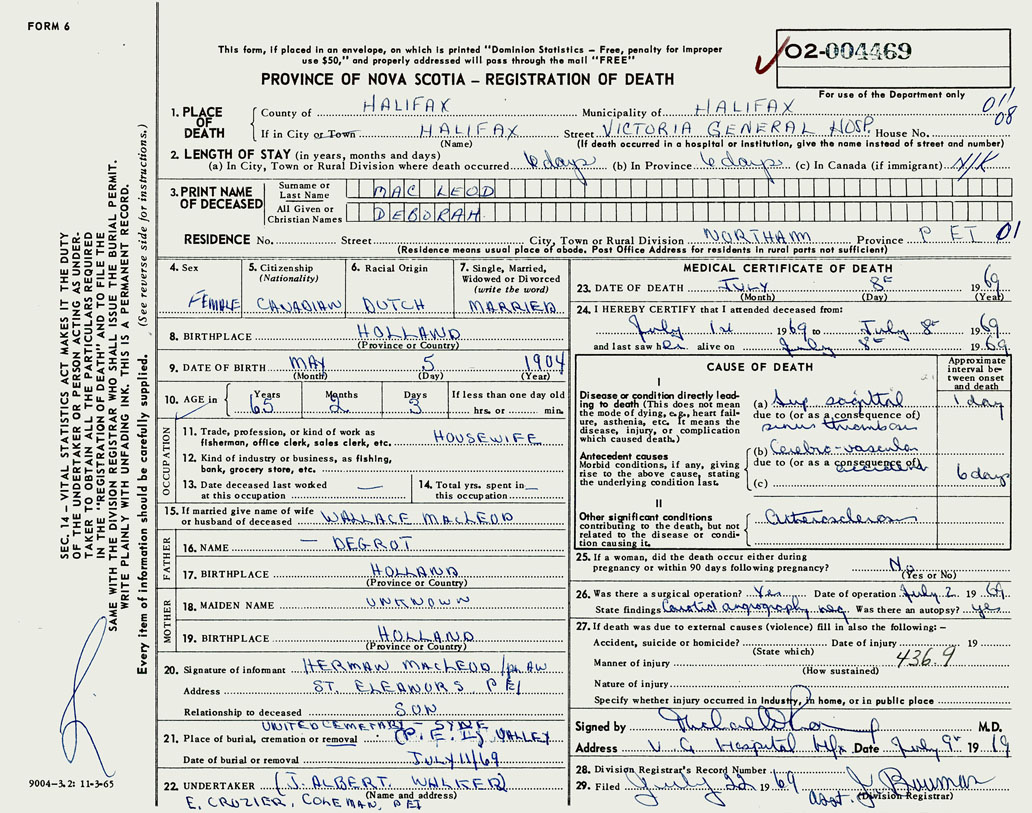 FORM 6
This form, if placed in an envelope, on which is printed "Dominion Statistics – Free, penalty for improper
use $50," and properly addressed will pass through the mail "FREE"
PROVINCE OF NOVA SCOTIA – REGISTRATION OF DEATH
02-004469
For use of the Department only
011
08
1. PLACE OF DEATH
County of HALIFAX Municipality of HALIFAX
If in City or Town HALIFAX Street VICTORIA GENERAL HOSP. House No.
(Name) (If death occurred in a hospital or institution, give the name instead of street and number)
2. LENGTH OF STAY (in years, months and days)
(a) In City, Town or Rural Division where death occurred 6 days (b) In Province 6 days (c) In Canada (if immigrant) N/K
3. PRINT NAME OF DECEASED
Surname or Last Name MAC LEOD
All Given or Christian Names DEBORAH
RESIDENCE No. Street City, Town or Rural Division NORTHAM Province P EI 01
(Residence means usual place of abode. Post Office Address for residents in rural parts not sufficient)
4. Sex FEMALE
5. Citizenship (Nationality) CANADIAN
6. Racial Origin DUTCH
7. Single, Married, Widowed or Divorced (write the word) MARRIED
8. BIRTHPLACE HOLLAND
(Province or Country)
9. DATE OF BIRTH MAY 5 1904
(Month) (Day) (Year)
10. AGE in Years 65 Months 2 Days 3 If less than one day old hrs. or min.
OCCUPATION
11. Trade, profession, or kind of work as fisherman, office clerk, sales clerk, etc. HOUSEWIFE
12. Kind of industry or business, as fishing, bank, grocery store, etc.
13. Date deceased last worked at this occupation —
14. Total yrs. spent in this occupation —
15. If married give name of wife or husband of deceased WALLACE MACLEOD
FATHER
16. NAME — DEGROT
17. BIRTHPLACE HOLLAND
(Province or Country)
MOTHER
18. MAIDEN NAME UNKNOWN
19. BIRTHPLACE HOLLAND
(Province or Country)
20. Signature of informant HERMAN MACLEOD /per AW
Address ST. ELEANORS P EI
Relationship to deceased SON
UNITED CEMETARY –
21. Place of burial, cremation or removal (P.E.I.) VALLEY
Date of burial or removal JULY 11/69
22. UNDERTAKER (J. ALBERT WALKER)
(Name and address)
E. CROZIER, COLEMAN, PEI
MEDICAL CERTIFICATE OF DEATH
23. DATE OF DEATH JULY 8th 1969
(Month) (Day) (Year)
24. I HEREBY CERTIFY that I attended deceased from:
July 1st 1969 to July 8th 1969
and last saw her alive on July 8th 1969
CAUSE OF DEATH
Approximate interval between onset and death
I
Disease or condition directly leading to death (This does not mean the mode of dying, e.g., heart failure, asthenia, etc. It means the disease, injury, or complication which caused death.)
(a) Sup sagittal 1 day
due to (or as a consequence of)
sinus thrombosis
Antecedent causes
Morbid conditions, if any, giving rise to the above cause, stating the underlying condition last.
(b) Cerebro-vascular
due to (or as a consequence of)
accident 6 days
(c)
II
Other significant conditions contributing to the death, but not related to the disease or condition causing it.
Arteriosclerosis
25. If a woman, did the death occur either during pregnancy or within 90 days following pregnancy? No
(Yes or No)
26. Was there a surgical operation? Yes Date of operation July 2 1969
State findings Carotid angiography neg Was there an autopsy? yes
27. If death was due to external causes (violence) fill in also the following: –
Accident, suicide or homicide? Date of injury 19
(State which)
Manner of injury 436.9
(How sustained)
Nature of injury
Specify whether injury occurred in industry, in home, or in public place
Signed by M.D.
Address V G Hospital Hfx Date July 9th 1969
28. Division Registrar's Record Number
29. Filed July 22 1969 Asst. J Bowman
(Division Registrar)
SEC. 14 – VITAL STATISTICS ACT MAKES IT THE DUTY
OF THE UNDERTAKER OR PERSON ACTING AS UNDER-
TAKER TO OBTAIN ALL THE PARTICULARS REQUIRED
IN THE "REGISTRATION OF DEATH" AND TO FILE THE
SAME WITH THE DIVISION REGISTRAR WHO SHALL ISSUE THE BURIAL PERMIT.
WRITE PLAINLY WITH UNFADING INK. THIS IS A PERMANENT RECORD.
Every item of information should be carefully supplied. (See reverse side for instructions.)
9004-3.2: 11-3-65